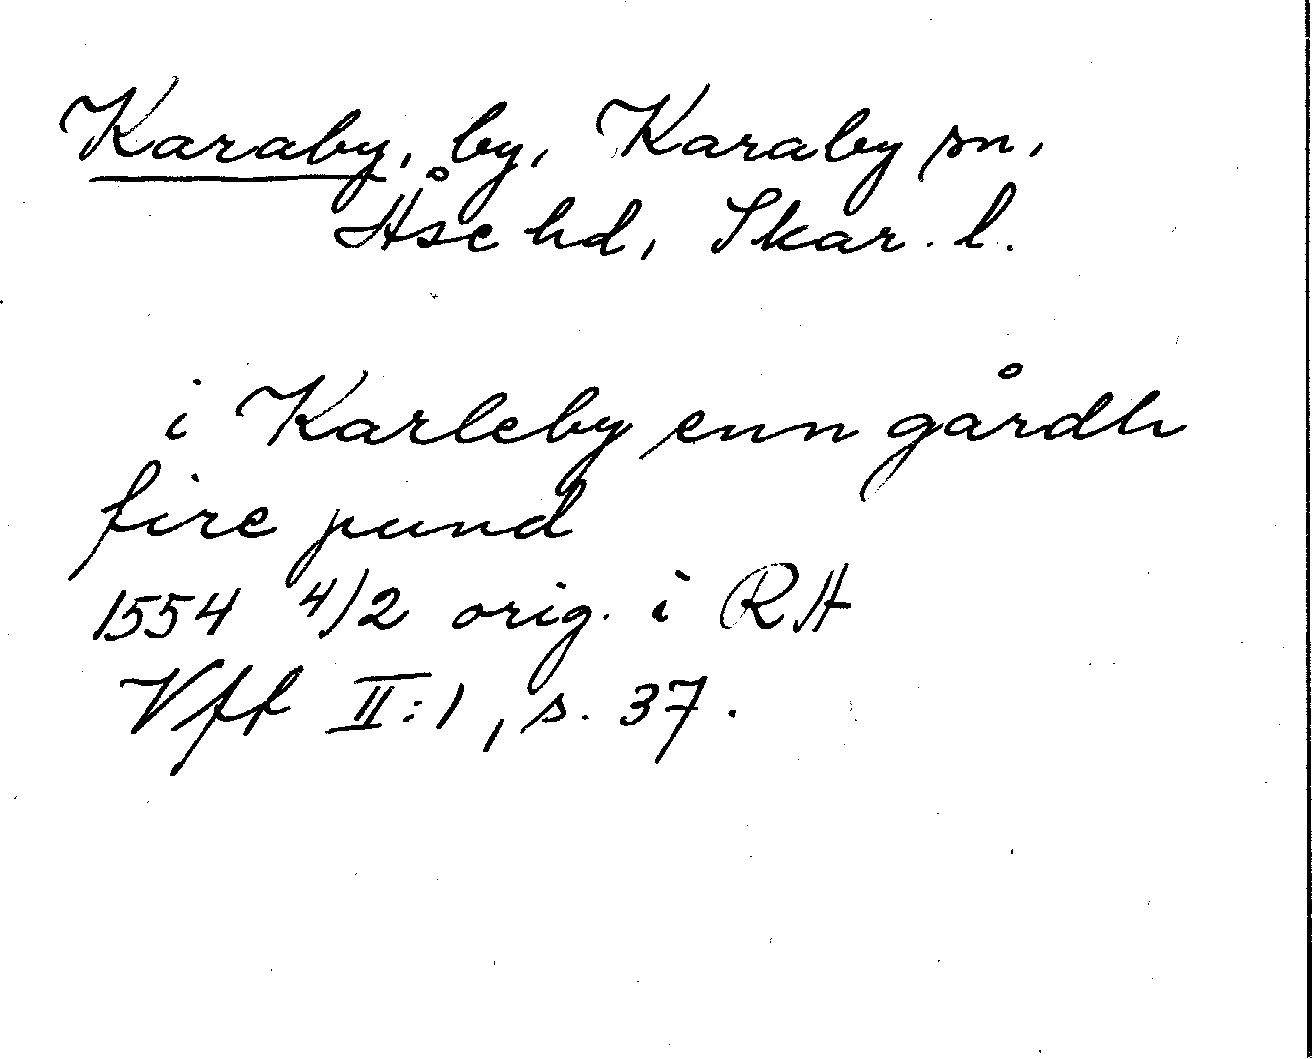 Karaby, by, Karaby sn,
Åse hd, Skar. l.
i Karleby enn gårdh
fire pund
1554 4/2 orig. i RH
Vff II:1, s. 37.